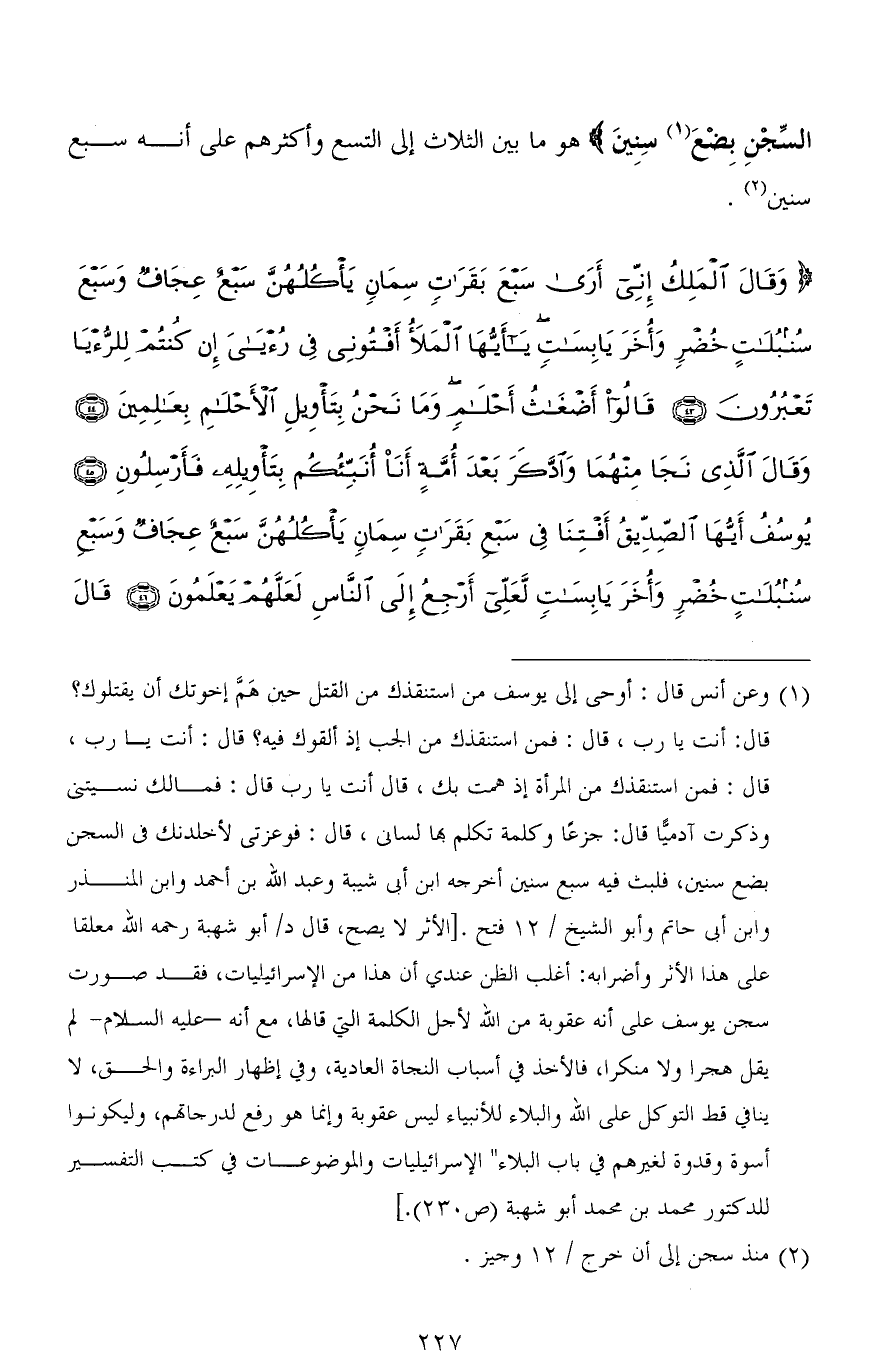 السِّجْنِ بِضْعَ(١) سِنِينَ ﴾ هو ما بين الثلاث إلى التسع وأكثرهم على أنه سبع
سنين(٢) .
﴿ وَقَالَ ٱلْمَلِكُ إِنِّىٓ أَرَىٰ سَبْعَ بَقَرَٰتٍ سِمَانٍ يَأْكُلُهُنَّ سَبْعٌ عِجَافٌ وَسَبْعَ
سُنۢبُلَٰتٍ خُضْرٍ وَأُخَرَ يَابِسَٰتٍ ۖ يَٰٓأَيُّهَا ٱلْمَلَأُ أَفْتُونِى فِى رُءْيَٰىَ إِن كُنتُمْ لِلرُّءْيَا
تَعْبُرُونَ ٤٣ قَالُوٓا۟ أَضْغَٰثُ أَحْلَٰمٍ ۖ وَمَا نَحْنُ بِتَأْوِيلِ ٱلْأَحْلَٰمِ بِعَٰلِمِينَ ٤٤
وَقَالَ ٱلَّذِى نَجَا مِنْهُمَا وَٱدَّكَرَ بَعْدَ أُمَّةٍ أَنَا۠ أُنَبِّئُكُم بِتَأْوِيلِهِۦ فَأَرْسِلُونِ ٤٥
يُوسُفُ أَيُّهَا ٱلصِّدِّيقُ أَفْتِنَا فِى سَبْعِ بَقَرَٰتٍ سِمَانٍ يَأْكُلُهُنَّ سَبْعٌ عِجَافٌ وَسَبْعِ
سُنۢبُلَٰتٍ خُضْرٍ وَأُخَرَ يَابِسَٰتٍ لَّعَلِّىٓ أَرْجِعُ إِلَى ٱلنَّاسِ لَعَلَّهُمْ يَعْلَمُونَ ٤٦ قَالَ
(١) وعن أنس قال : أوحى إلى يوسف من استنقذك من القتل حين هَمَّ إخوتك أن يقتلوك؟
قال: أنت يا رب ، قال : فمن استنقذك من الجب إذ ألقوك فيه؟ قال : أنت يا رب ،
قال : فمن استنقذك من المرأة إذ همت بك ، قال أنت يا رب قال : فمالك نسيتنى
وذكرت آدميًّا قال: جزعًا وكلمة تكلم بها لسانى ، قال : فوعزتى لأخلدنك فى السجن
بضع سنين، فلبث فيه سبع سنين أخرجه ابن أبى شيبة وعبد الله بن أحمد وابن المنذر
وابن أبى حاتم وأبو الشيخ / ١٢ فتح .[الأثر لا يصح، قال د/ أبو شهبة رحمه الله معلقا
على هذا الأثر وأضرابه: أغلب الظن عندي أن هذا من الإسرائيليات، فقد صورت
سجن يوسف على أنه عقوبة من الله لأجل الكلمة التي قالها، مع أنه –عليه السلام– لم
يقل هجرا ولا منكرا، فالأخذ في أسباب النجاة العادية، وفي إظهار البراءة والحق، لا
ينافي قط التوكل على الله والبلاء للأنبياء ليس عقوبة وإنما هو رفع لدرجاتهم، وليكونوا
أسوة وقدوة لغيرهم في باب البلاء" الإسرائيليات والموضوعات في كتب التفسير
للدكتور محمد بن محمد أبو شهبة (ص٢٣٠).]
(٢) منذ سجن إلى أن خرج / ١٢ وجيز .
٢٢٧